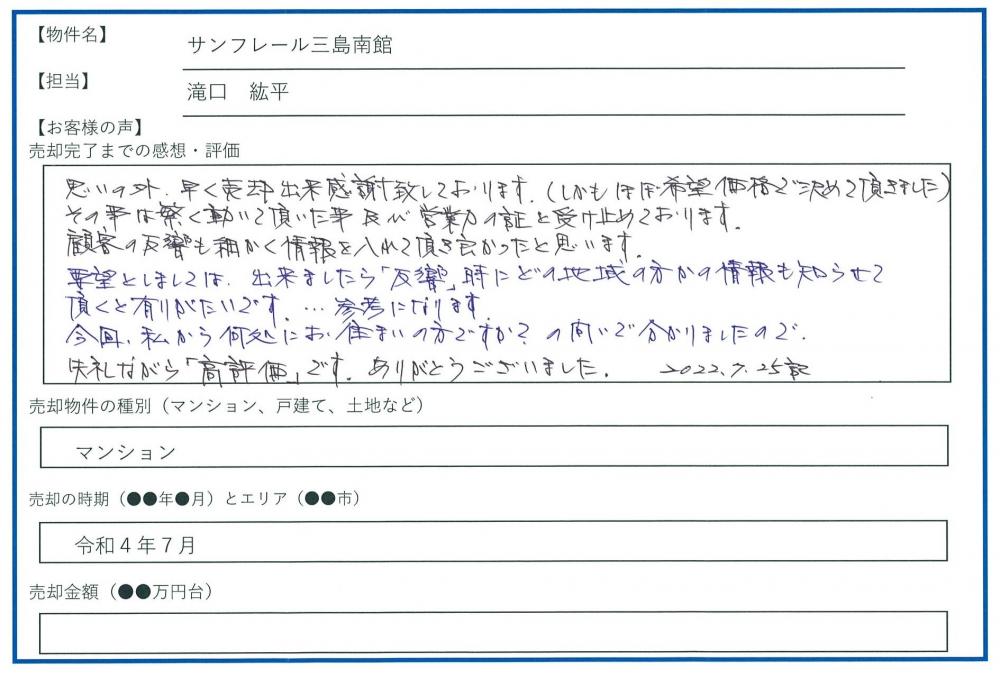 【物件名】
サンフレール三島南館
【担当】
滝口 紘平
【お客様の声】
売却完了までの感想・評価
思いの外、早く売却出来感謝致しております。(しかもほぼ希望価格で決めて頂きました)
その事は繁く動いて頂いた事 及び 営業力の証と受け止めております。
顧客の反響も細かく情報を入れて頂き良かったと思います。
要望としましては、出来ましたら「反響」時にどの地域の方かの情報も知らせて
頂くと有りがたいです。…参考になります。
今回、私から何処にお住まいの方ですか？の問いで分かりましたので、
失礼ながら「高評価」です。ありがとうございました。 2022.7.25記
売却物件の種別（マンション、戸建て、土地など）
マンション
売却の時期（●●年●月）とエリア（●●市）
令和４年７月
売却金額（●●万円台）